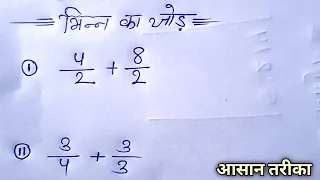 भिन्न का जोड़
① 4/2 + 8/2
⑪ 3/4 + 3/3
आसान तरीका